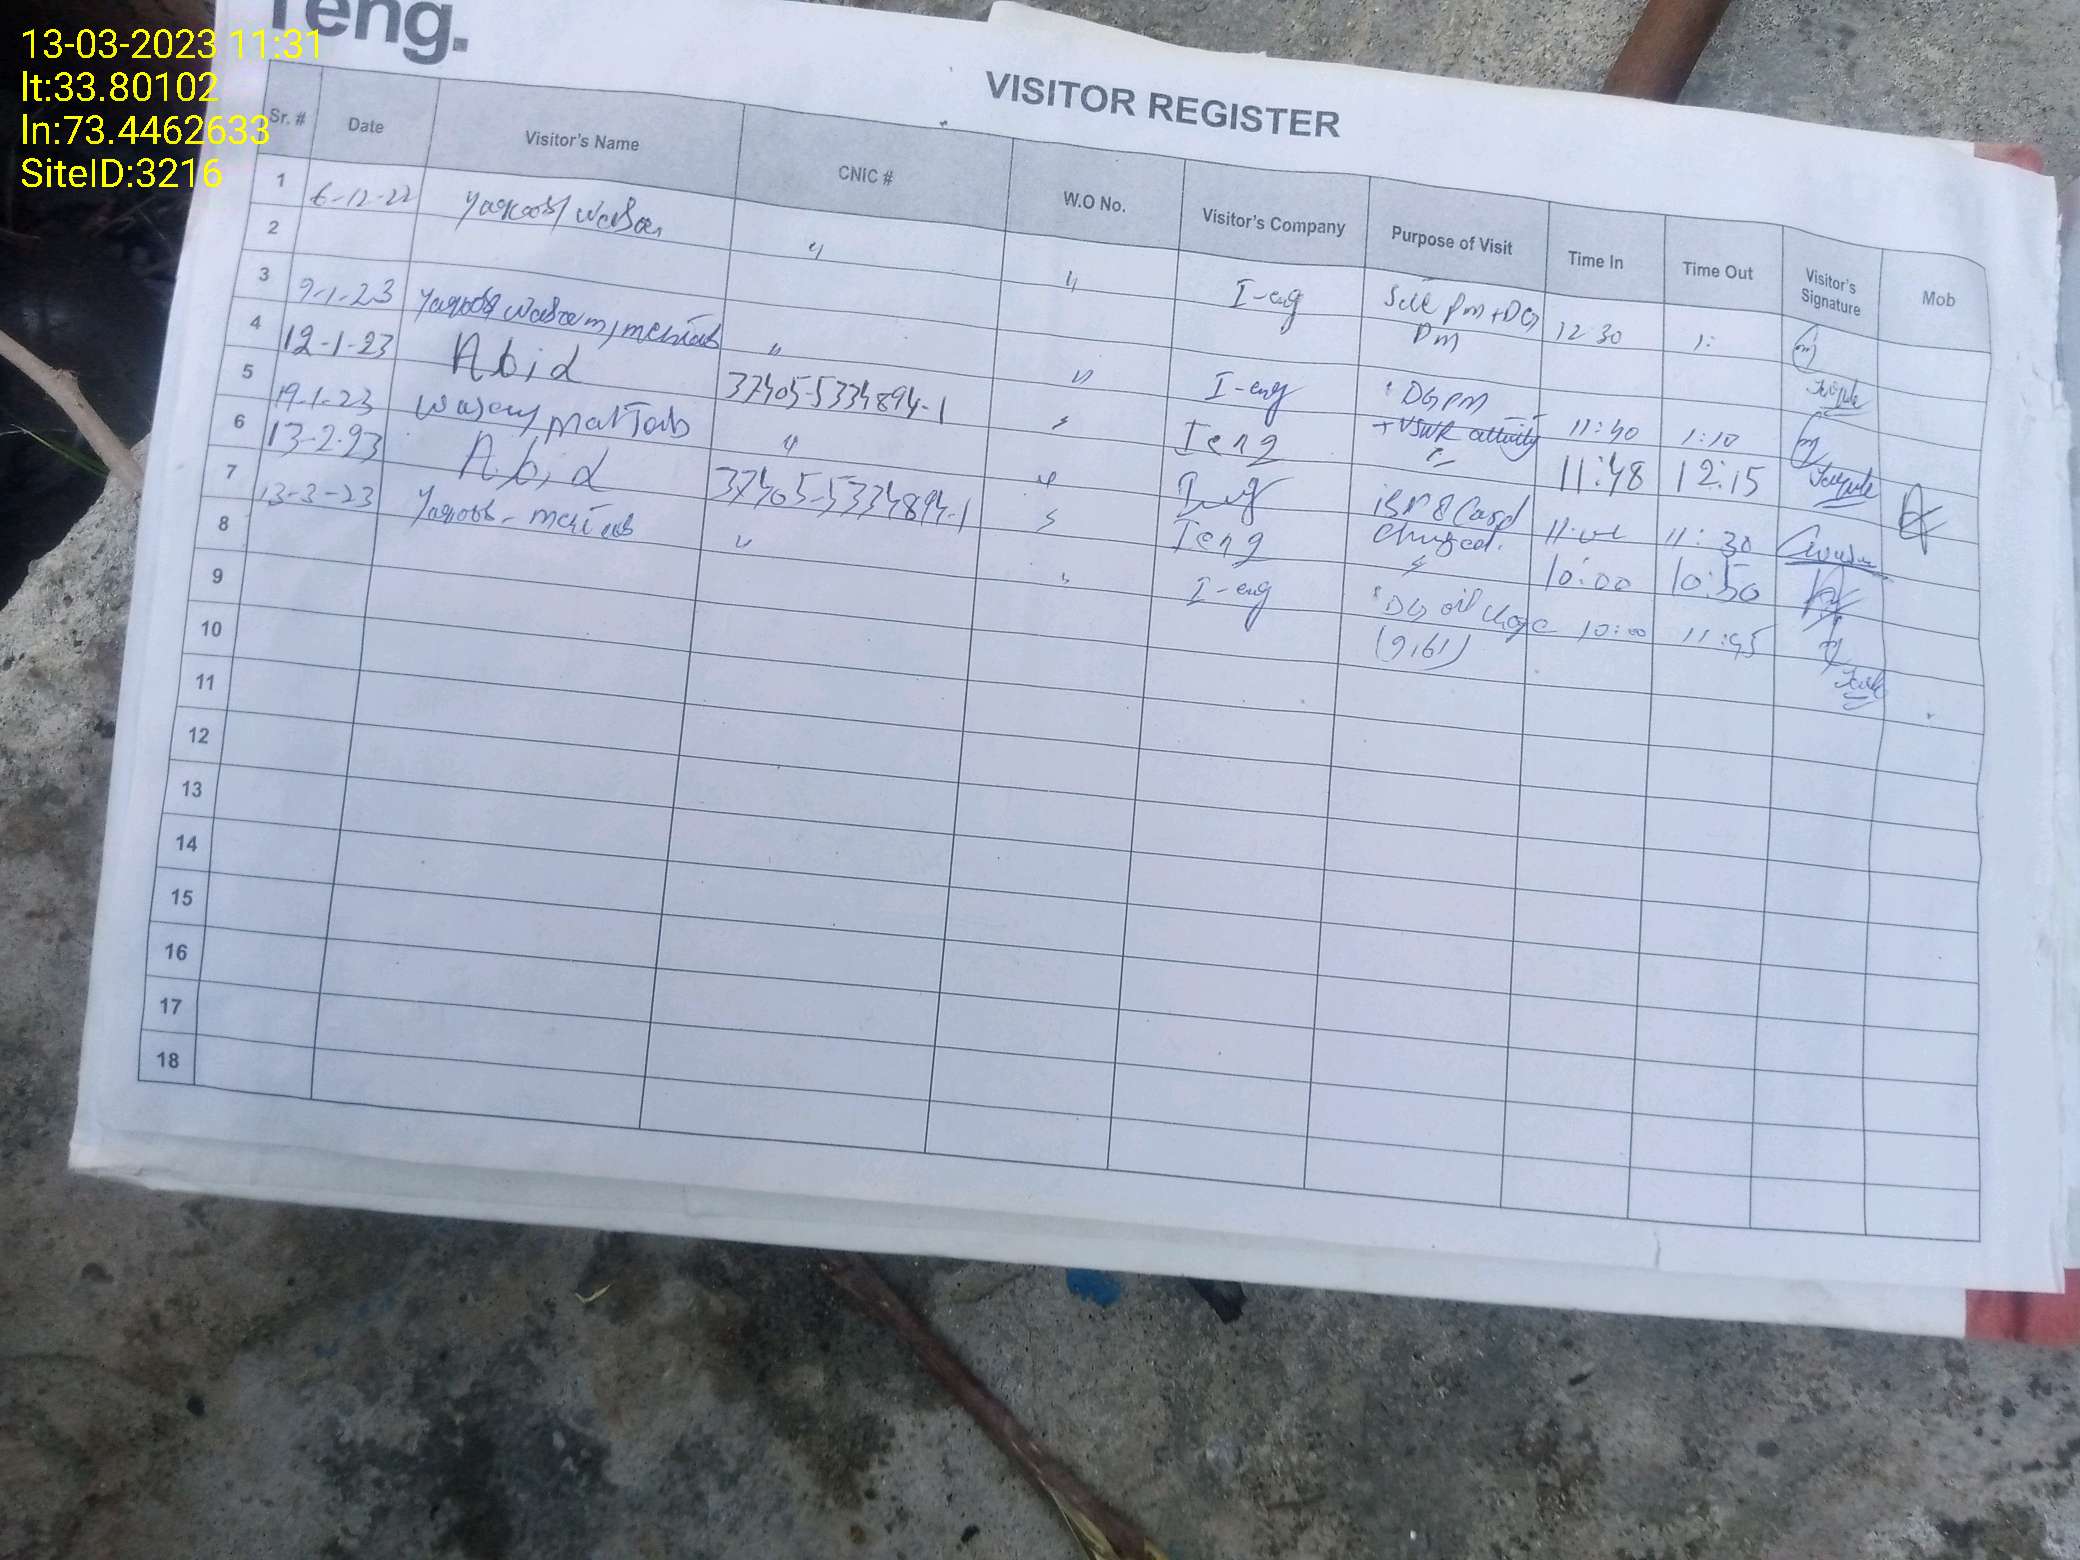 13-03-2023 11:31
lt:33.80102
ln:73.4462633
SiteID:3216
eng.
VISITOR REGISTER
Sr. # Date Visitor's Name CNIC # W.O No. Visitor's Company Purpose of Visit Time In Time Out Visitor's Signature Mob
1 6-12-22 Yaqoob/ Waseem " " I-eng Site Pm + DG 12 30 1:
2 Pm
3 9-1-23 Yaqoob Waseem, mehtab " " I-eng DG PM 11:40 1:10
4 12-1-23 Abid 37405-5334894-1 Ieng + VSWR activity 11:48 12:15
5 19-1-23 " I-eng Card 11:30
6 13-2-23 Abid 37405-5334894-1 Ieng 10:00 10:50
7 13-3-23 Yaqoob - mehtab " " I-eng DG oil 10:00 11:45
8 (9161)
9
10
11
12
13
14
15
16
17
18